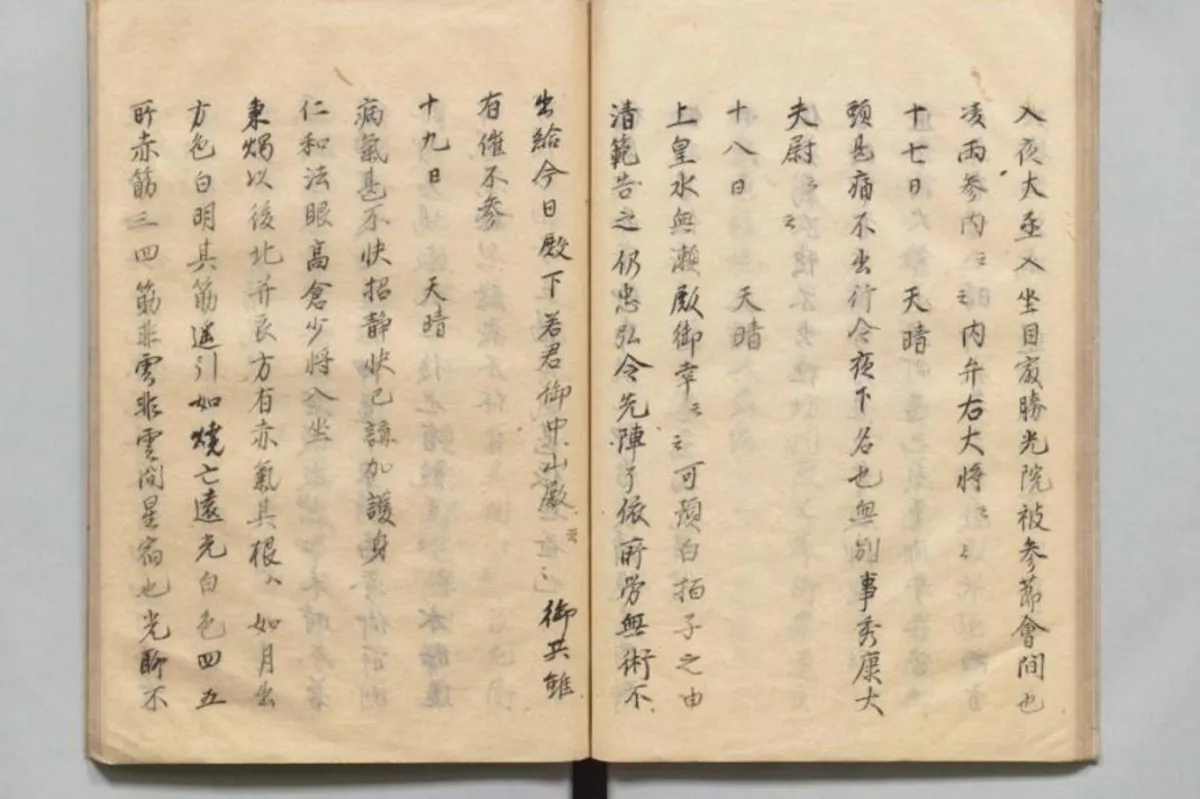 入夜大丞入坐自最勝光院被参節會間也
凌雨参内云〻内弁右大将云〻
十七日 天晴
頭甚痛不出行今夜下名也無別事秀康大
夫尉云〻
十八日 天晴
上皇水無瀬殿御幸云〻可預白拍子之由
清範告之仍忠弘令先陣了依所労無術不
出給今日殿下若君御中山殿云〻御共雖
有催不参
十九日 天晴
病氣甚不快招静快已講加護身
仁和法眼高倉少将入坐
秉燭以後北并艮方有赤氣其根ハ如月出
方色白明其筋遥引如焼亡遠光白色四五
所赤筋三四筋非雲非雲間星宿也光聊不